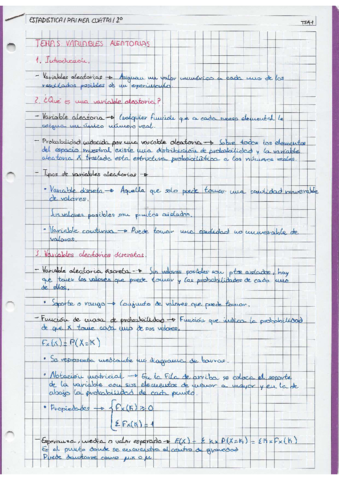 ESTADISTICA / PRIMER CUATRI / 2º
TEMA 1
TEMA 5 VARIABLES ALEATORIAS
1. Introducción.
- Variables aleatorias → Asignan un valor numérico a cada uno de los
resultados posibles de un experimento
2. ¿Qué es una variable aleatoria?
- Variable aleatoria → Cualquier función que a cada suceso elemental le
asigna un único número real.
- Probabilidad inducida por una variable aleatoria → Sobre todos los elementos
del espacio muestral existe una distribución de probabilidad y la variable
aleatoria X traslada esta estructura probabilística a los números reales.
- Tipos de variables aleatorias →
• Variable discreta → Aquella que solo puede tomar una cantidad numerable
de valores.
Los valores posibles son puntos aislados.
• Variable continua → Puede tomar una cantidad no numerable de
valores.
2. Variables aleatorias discretas.
- Variable aleatoria discreta → Sus valores posibles son ptos aislados, hay
que tener los valores que puede tomar y las probabilidades de cada uno
de ellos.
• Soporte o rango → Conjunto de valores que puede tomar.
- Función de masa de probabilidad → Función que indica la probabilidad
de que X tome cada uno de sus valores.
Fx(x) = P(X=x)
• Se representa mediante un diagrama de barras.
• Notación matricial → En la fila de arriba se coloca el soporte
de la variable con sus elementos de menor a mayor y en la de
abajo la probabilidad de cada punto.
• Propiedades → { Fx(k) ≥ 0
{ Σ Fx(k) = 1
- Esperanza, media o valor esperado → E(X) = Σ k x P(X=k) = Σ k · Fx(k)
Es el punto donde se encuentra el centro de gravedad
Puede denotarse como μx o μ